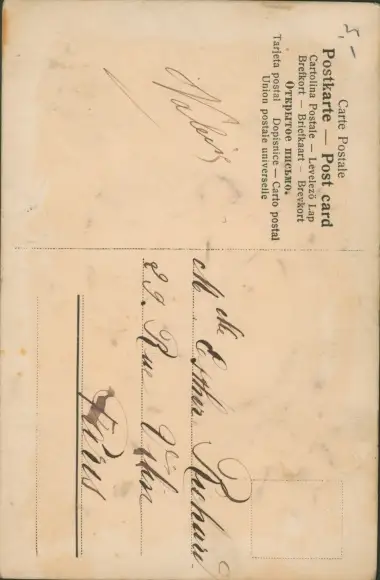 5, —
Carte Postale
Postkarte — Post card
Cartolina Postale — Levelező Lap
Brefkort — Briefkaart — Brevkort
Открытое письмо.
Tarjeta postal Dopisnice — Carto postal
Union postale universelle
Mlle Esther Richard
29. Rue
Paris